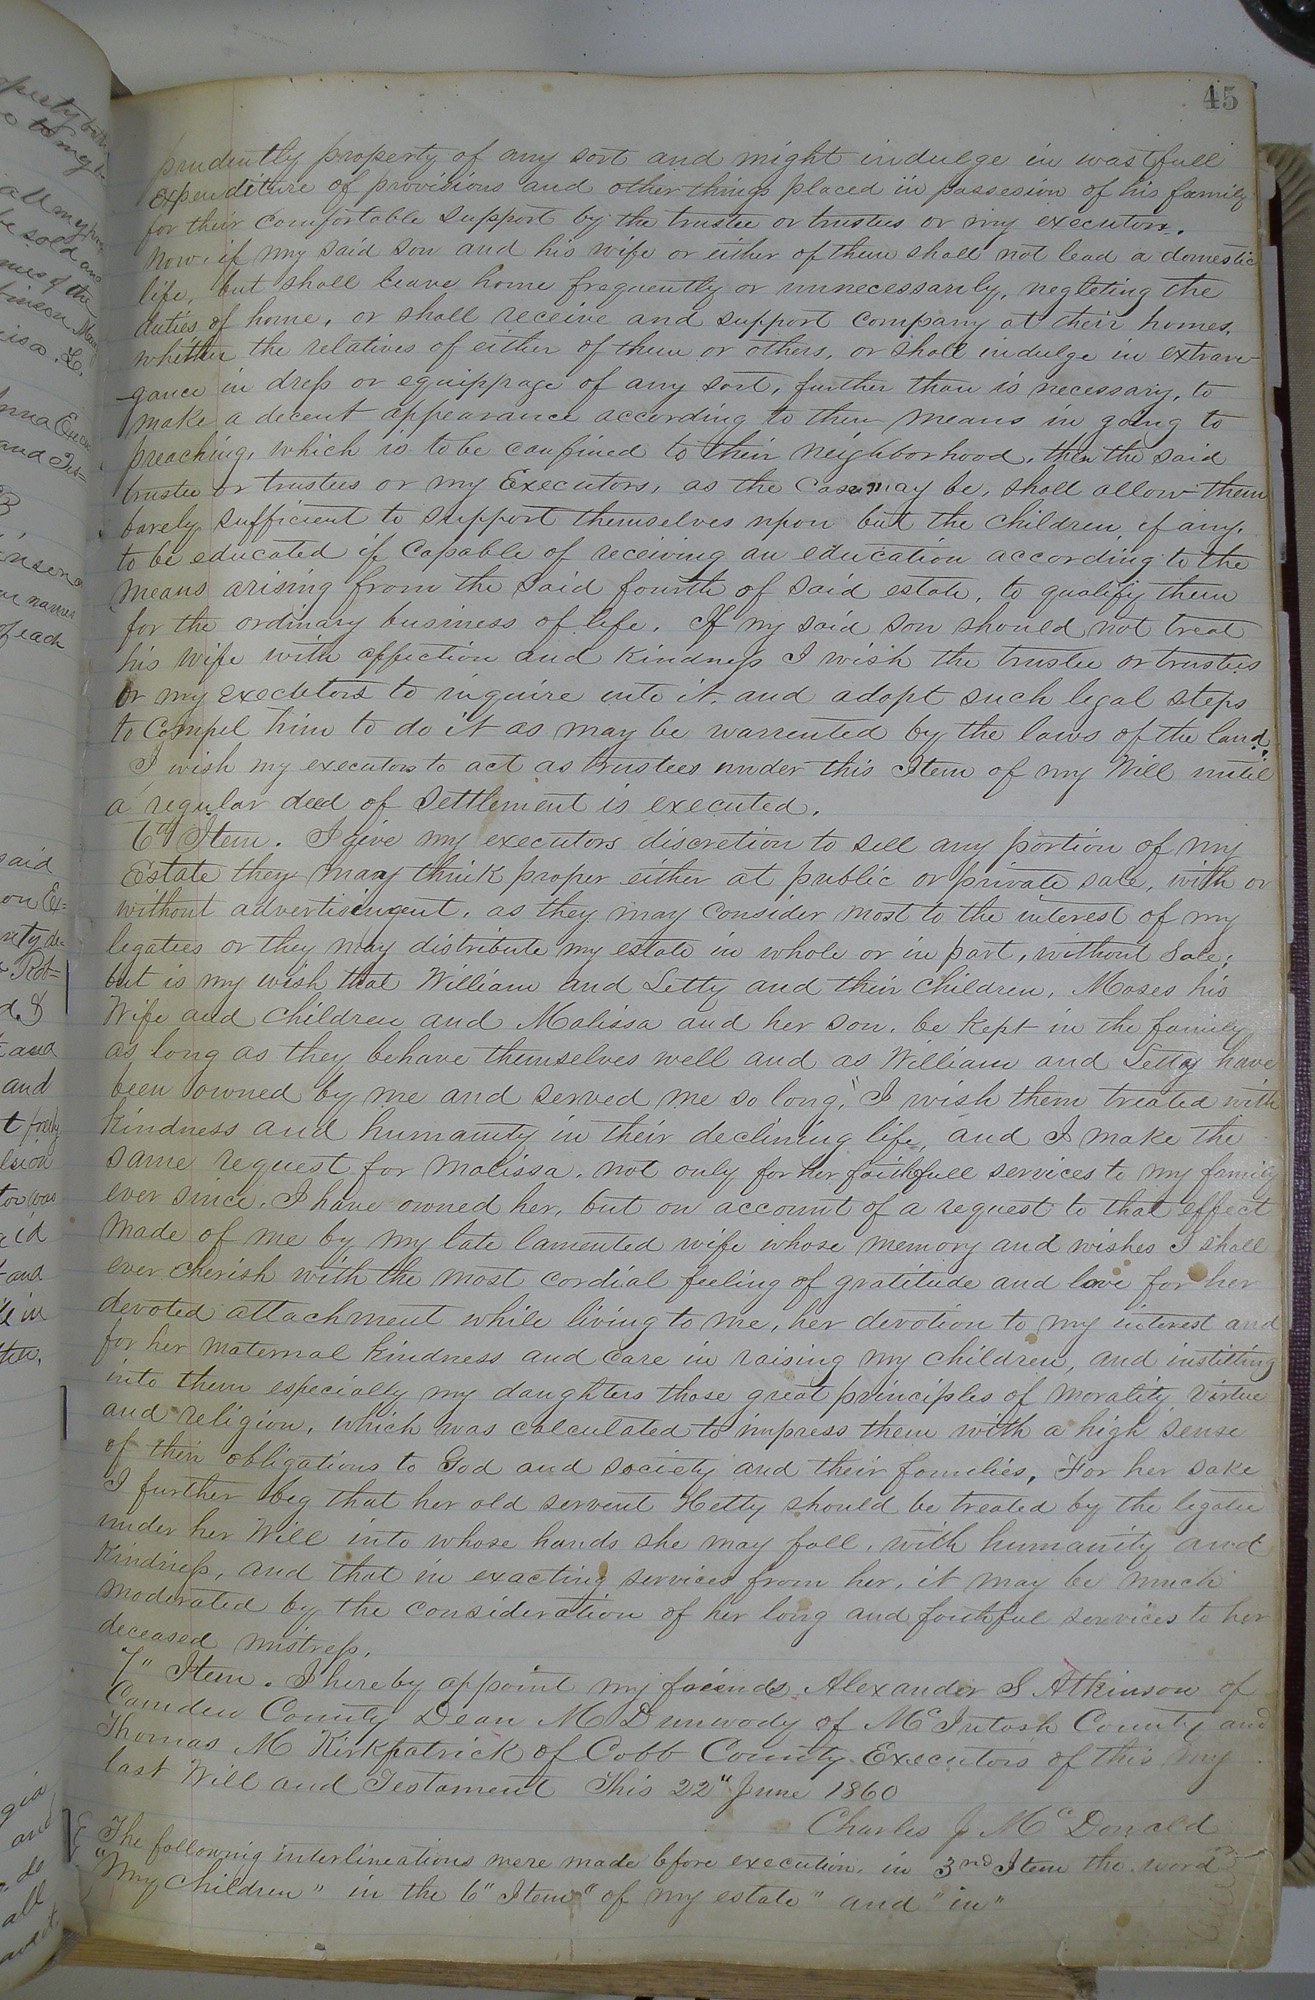 45
prudently property of any sort and might indulge in wastfull
expenditure of provisions and other things placed in possesion of his family
for their comfortable support by the trustee or trustees or my executors.
Now if my said son and his wife or either of them shall not lead a domestic
life, but shall leave home frequently or unnecessarily, negleting the
duties of home, or shall receive and support company at their homes,
whether the relatives of either of them or others, or shall indulge in extrava-
gance in dress or equippage of any sort, further than is necessary, to
make a decent appearance according to their means in going to
preaching, which is to be confined to their neighborhood, then the said
trustee or trustees or my Executors, as the case may be, shall allow them
barely sufficient to support themselves upon but the children, if any,
to be educated if capable of receiving an education according to the
means arising from the said fourth of said estate, to qualify them
for the ordinary business of life. If my said son should not treat
his wife with affection and kindness I wish the trustee or trustees
or my executors to inquire into it, and adopt such legal steps
to compel him to do it as may be warrented by the laws of the land.
I wish my executors to act as trustees under this Item of my Will until
a regular deed of settlement is executed.
6th Item. I give my executors discretion to sell any portion of my
Estate they may think proper either at public or private sale, with or
without advertisingent, as they may consider most to the interest of my
legatees or they may distribute my estate in whole or in part, without sale;
but is my wish that William and Letty and their children, Moses his
Wife and children and Malissa and her son, be kept in the family
as long as they behave themselves well and as William and Letty have
been owned by me and served me so long, I wish them treated with
kindness and humanity in their declining life, and I make the
same request for malissa, not only for her faithfull services to my family
ever since I have owned her, but on account of a request to that effect
made of me by my late lamented wife whose memory and wishes I shall
ever cherish with the most cordial feeling of gratitude and love for her
devoted attachment while living to me, her devotion to my interest and
for her maternal kindness and care in raising my children, and instilling
into them especially my daughters those great principles of morality virtue
and religion, which was calculated to impress them with a high sense
of their obligations to God and society and their families. For her sake
I further beg that her old servent Hetty should be treated by the legatee
under her Will into whose hands she may fall, with humanity and
kindness, and that in exacting services from her, it may be much
moderated by the consideration of her long and faithful services to her
deceased mistress.
7" Item. I hereby appoint my friends Alexander S Atkinson of
Camden County Dean M Dunwody of McIntosh County and
Thomas M Kirkpatrick of Cobb County Executors of this my
last Will and Testament This 22" June 1860
Charles J McDonald
The following interlineations were made before execution, in 3nd Item the word
"My Children" in the 6" Item "of my estate" and "in"